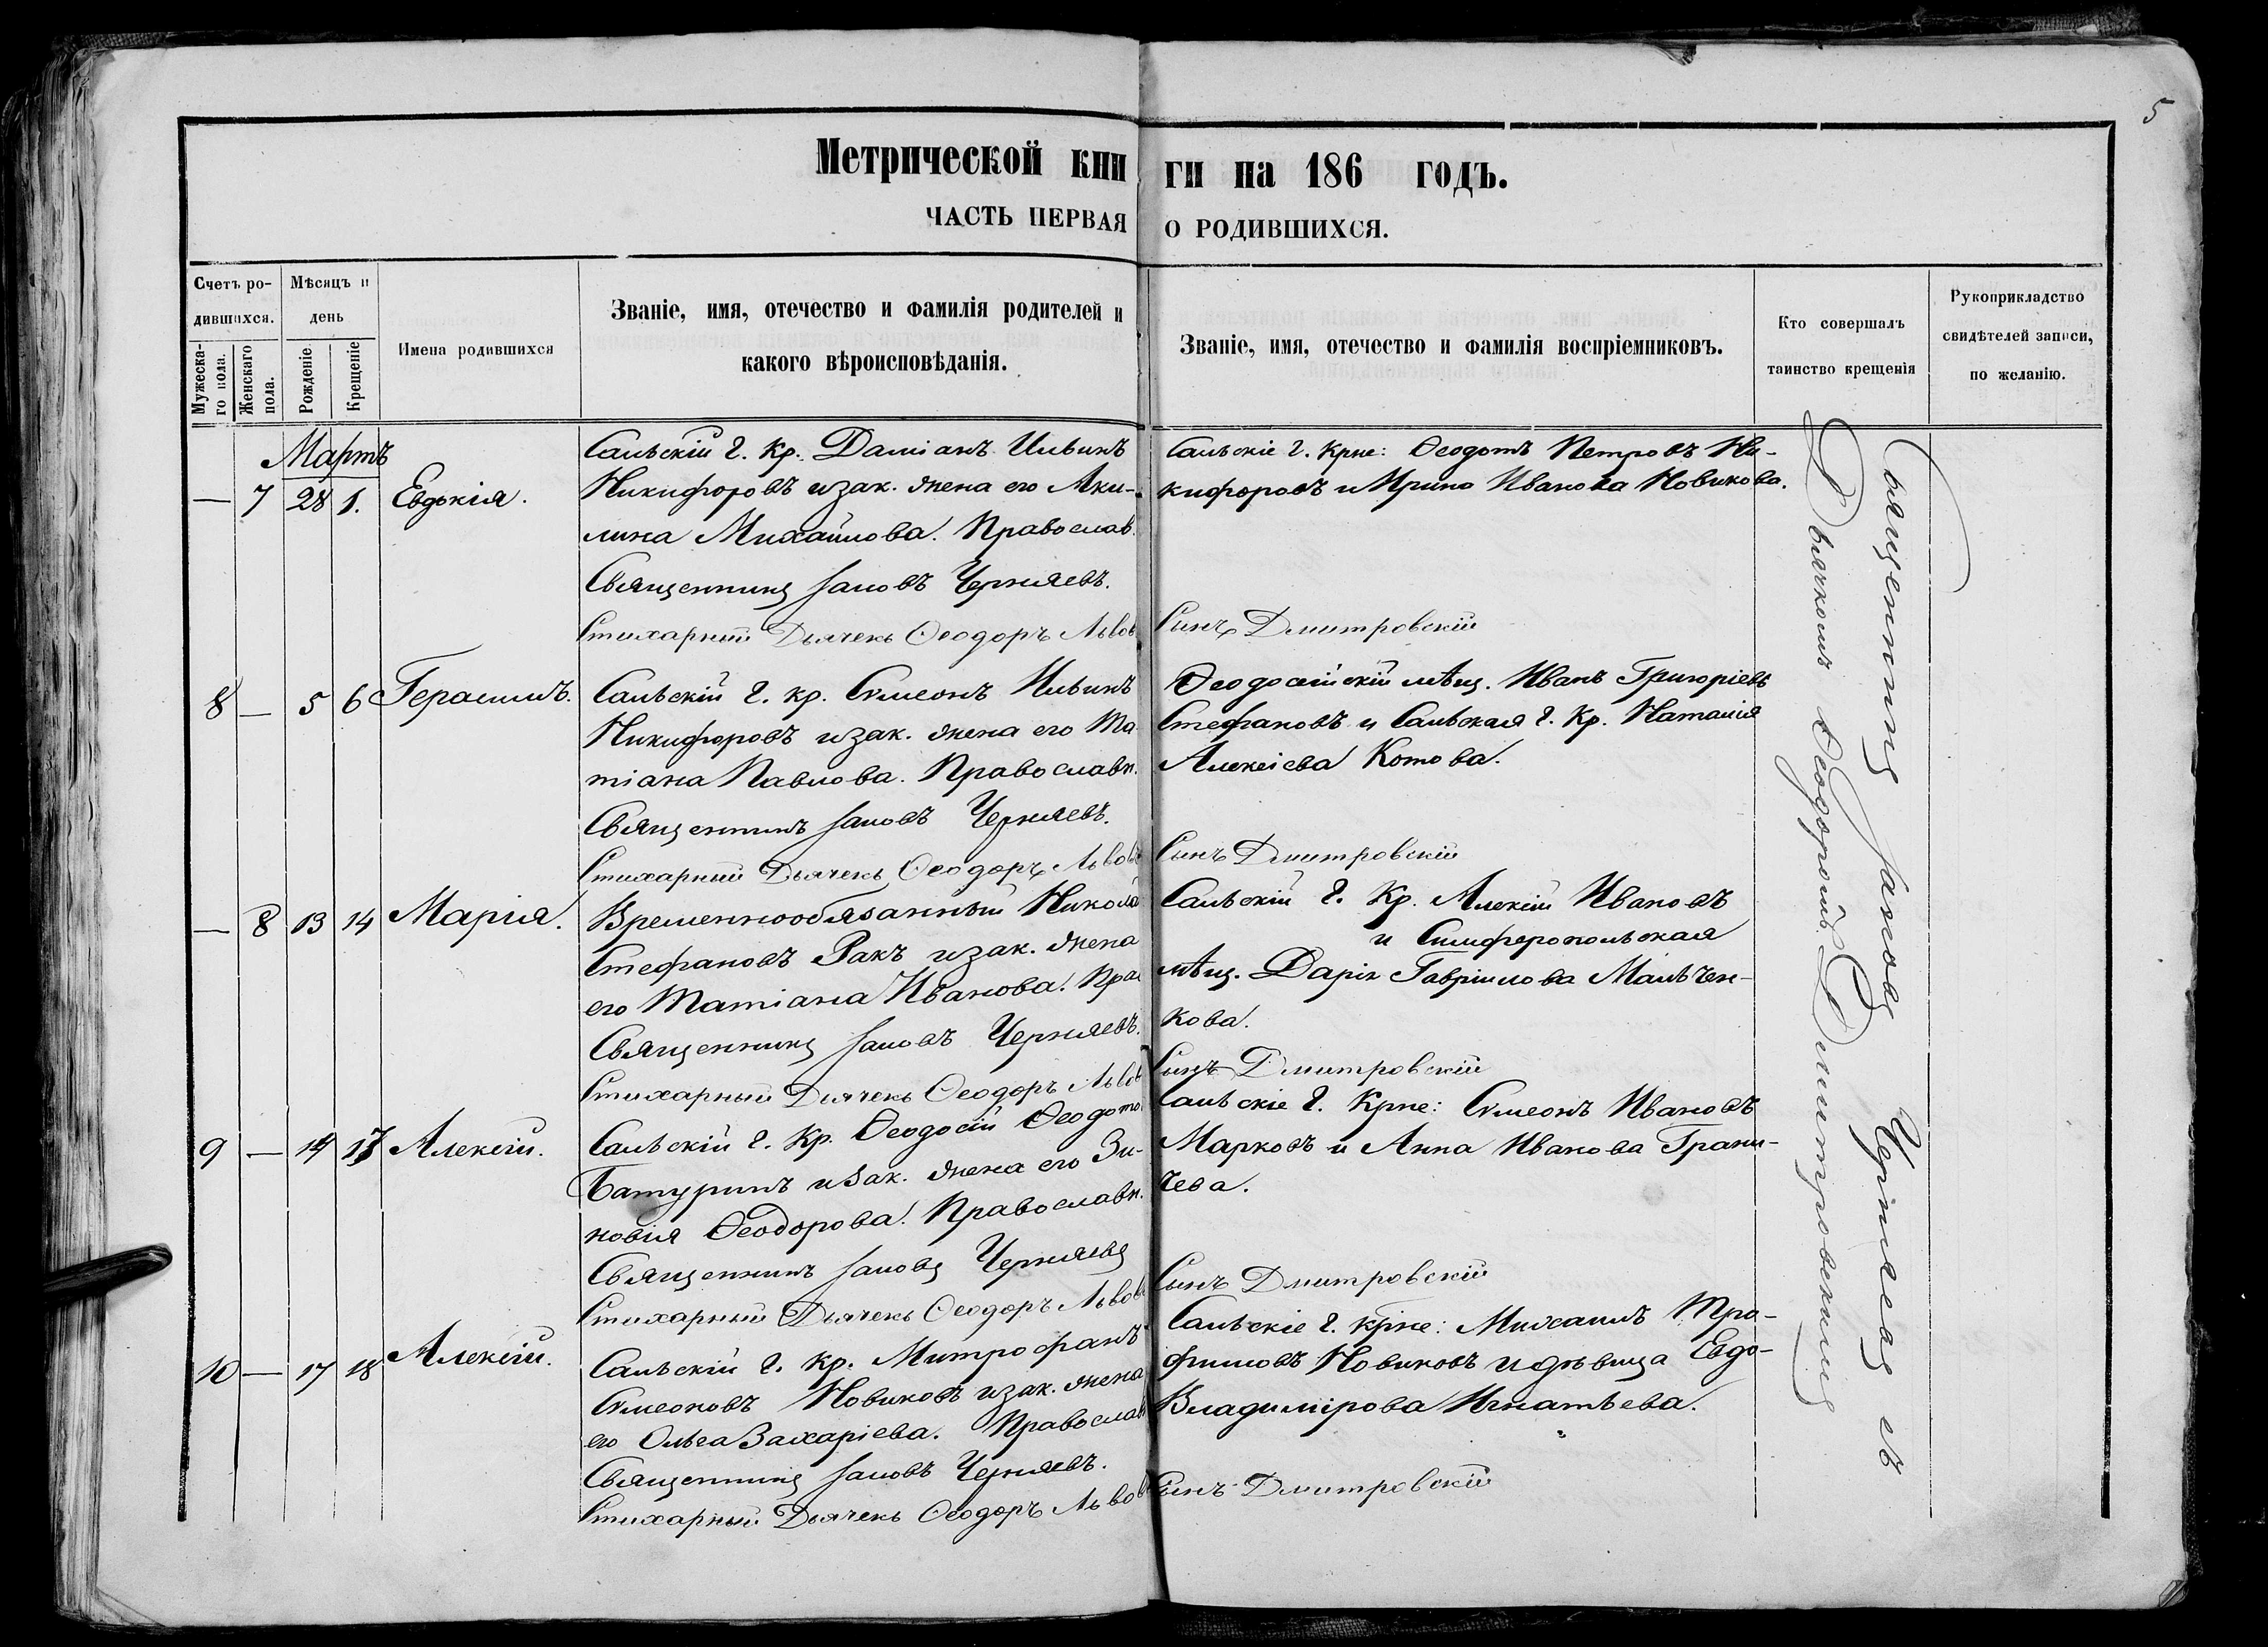 5
Метрической кни ги на 186 годъ.
ЧАСТЬ ПЕРВАЯ О РОДИВШИХСЯ.
Счетъ ро-
дившихся.
Мужеска-
го пола.
Женскаго
пола.
Мѣсяцъ и
день
Рожденіе
Крещеніе
Имена родившихся
Званіе, имя, отечество и фамилія родителей и
какого вѣроисповѣданія.
Званіе, имя, отечество и фамилія воспріемниковъ.
Кто совершалъ
таинство крещенія
Рукоприкладство
свидѣтелей записи,
по желанію.
Мартъ
— 7 28 1. Евдокія.
Сальскій г. Кр. Даміанъ Ильинъ
Никифоровъ и зак. жена его Аки-
лина Михайлова. Православ.
Священникъ Іаковъ Черняевъ.
Стихарный Дьячекъ Ѳеодоръ Львовъ
Сальскіе г. Крне: Ѳеодотъ Петровъ Ни-
кифоровъ и Ирина Иванова Новикова.
Сынъ Дмитровскій
8 — 5 6 Герасимъ.
Сальскій г. кр. Сѵмеонъ Ильинъ
Никифоровъ и зак. жена его Та
тіана Павлова. Православн.
Священникъ Іаковъ Черняевъ.
Стихарный Дьячекъ Ѳеодоръ Львовъ
Ѳеодосійскій мѣщ. Иванъ Григоріевъ
Стефановъ и Сальская г. Кр. Наталія
Алексіева Котова.
Сынъ Дмитровскій
— 8 13 14 Марія.
Временнообязанный Никола
Стефановъ Ракъ и зак. жена
его Татіана Иванова. Пра
Священникъ Іаковъ Черняевъ.
Стихарный Дьячекъ Ѳеодоръ Львовъ
Сальскій г. Кр. Алексій Ивановъ
и Симферопольская
мѣщ. Дарія Гавріилова Мальчен-
кова.
Сынъ Дмитровскій
9 — 14 17 Алексій.
Сальскій г. Кр. Ѳеодосій Ѳеодото
Батуринъ и зак. жена его Зи-
новія Ѳеодорова. Православн.
Священникъ Іаковъ Черняевъ
Стихарный Дьячекъ Ѳеодоръ Львовъ
Сальскіе г. Крне: Сѵмеонъ Ивановъ
Марковъ и Анна Иванова Грани-
чева.
Сынъ Дмитровскій
10 — 17 18 Алексій.
Сальскій г. Кр. Митрофанъ
Сѵмеоновъ Новиковъ и зак. жена
его Ольга Захаріева. Православ
Священникъ Іаковъ Черняевъ.
Стихарный Дьячекъ Ѳеодоръ Львов
Сальскіе г. Крне: Михаилъ Тро-
фимовъ Новиковъ и дѣвица Евдо-
Владимірова Игнатьева.
Сынъ Дмитровскій
Священникъ Іаковъ Черняевъ съ
Дьячкомъ Ѳеодоромъ Дмитровскимъ